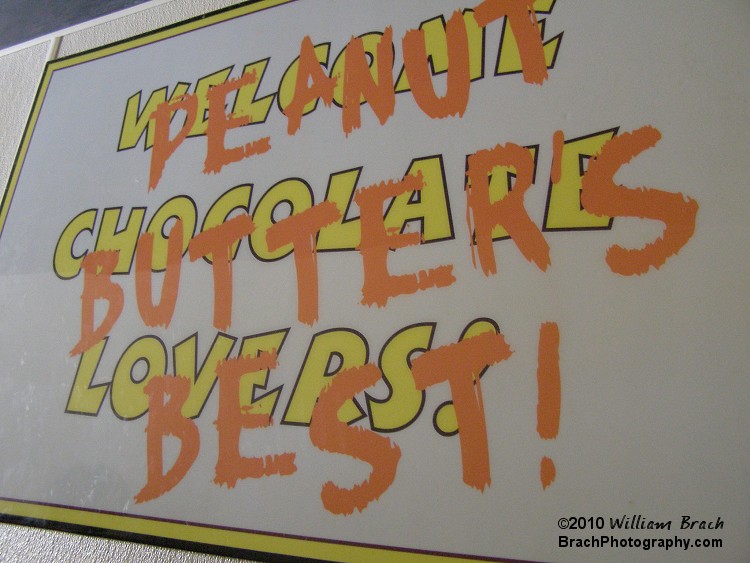 WELCOME
PEANUT
CHOCOLATE
BUTTER'S
LOVERS!
BEST!
©2010 William Brach
BrachPhotography.com